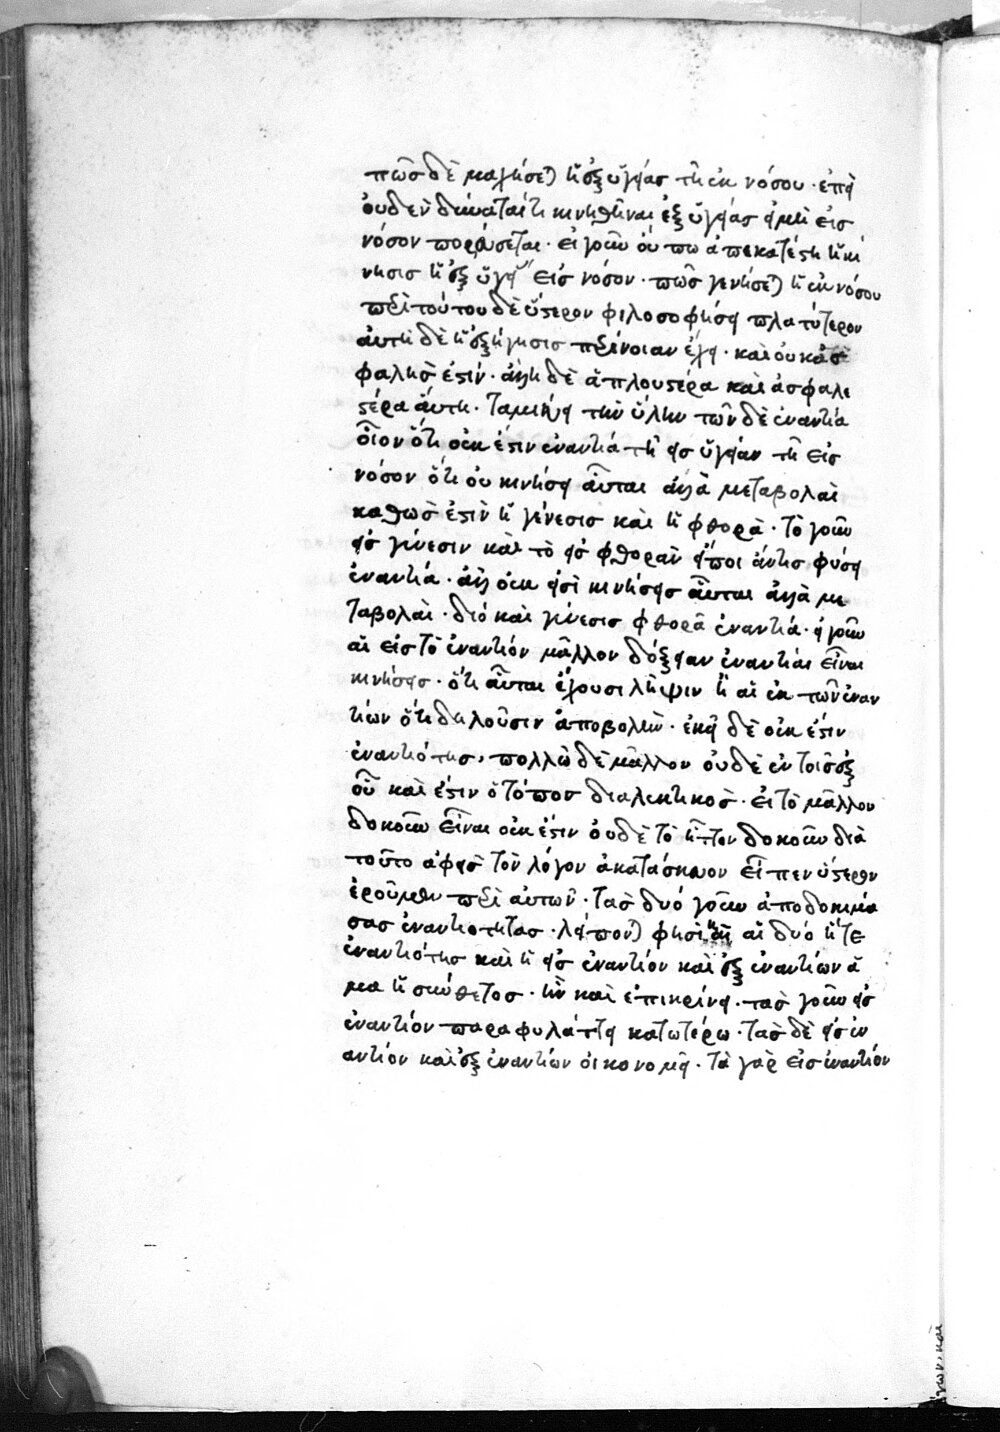 πῶς δὲ μαχήσεται ἡ ἐξ ὑγείας τῇ ἐκ νόσου· ἐπεὶ
οὐδὲν δύναταί τι κινηθῆναι ἐξ ὑγείας εἰ μὴ εἰς
νόσον πορεύσεται. εἰ γοῦν οὔπω ἀπεκατέστη ἡ κί
νησις ἡ ἐξ ὑγείας εἰς νόσον· πῶς γενήσεται ἡ ἐκ νόσου
περὶ τούτου δὲ ὕστερον φιλοσοφήσει πλατύτερον
αὕτη δὲ ἡ ἐξήγησις περίνοιαν ἔχει· καὶ οὐκ ἀσ
φαλής ἐστιν· ἀλλὴ δὲ ἁπλουστέρα καὶ ἀσφαλε
στέρα αὕτη· τὴν ὕλην τῶν δὲ ἐναντία
οἷον ὅτι οὐκ ἔστιν ἐναντία τῇ εἰς ὑγείαν τῇ εἰς
νόσον ὅτι οὐ κινήσεις αὗται ἀλλὰ μεταβολαὶ
καθὼς ἐστὶν ἡ γένεσις καὶ ἡ φθορά· τὸ γοῦν
εἰς γένεσιν καὶ τὸ εἰς φθορὰν εἴποι ἄν τις φύσει
ἐναντία· ἀλλ' οὐκ εἰσὶ κινήσεις αὗται ἀλλὰ με
ταβολαὶ· διὸ καὶ γένεσις φθορᾷ ἐναντία· εἰ γοῦν
αἱ εἰς τὸ ἐναντίον μᾶλλον δόξειαν ἐναντίαι εἶναι
κινήσεις· ὅτι αὗται ἔχουσι λῆψιν ἢ αἱ ἐκ τῶν ἐναν
τίων ὅτι δηλοῦσιν ἀποβολήν· ἐκεῖ δὲ οὐκ ἔστιν
ἐναντιότης, πολλῷ δὲ μᾶλλον οὐδὲ ἐν τοῖς ἐξ
οὗ καὶ ἔστιν ὁ τόπος διαλεκτικός· εἰ τὸ μᾶλλον
δοκοῦν εἶναι οὐκ ἔστιν οὐδὲ τὸ ἧττον δοκοῦν διὰ
τοῦτο ἀφεὶς τὸν λόγον ἀκατάσκευον εἶπεν ὕστερον
ἐροῦμεν περὶ αὐτῶν· τὰς δύο γοῦν ἀποδοκιμά
σας ἐναντιότητας· λείπονται φησὶν αἱ δύο ἥ τε
ἐναντιότης καὶ ἡ εἰς ἐναντίον καὶ ἐξ ἐναντίων ἅ
μα ἡ σύνθετος· ἣν καὶ ἐπικρίνει· τὰς γοῦν εἰς
ἐναντίον παραφυλάττει κατωτέρω· τὰς δὲ εἰς ἐν
αντίον καὶ ἐξ ἐναντίων οἰκονομεῖ· τὰ γὰρ εἰς ἐναντίον